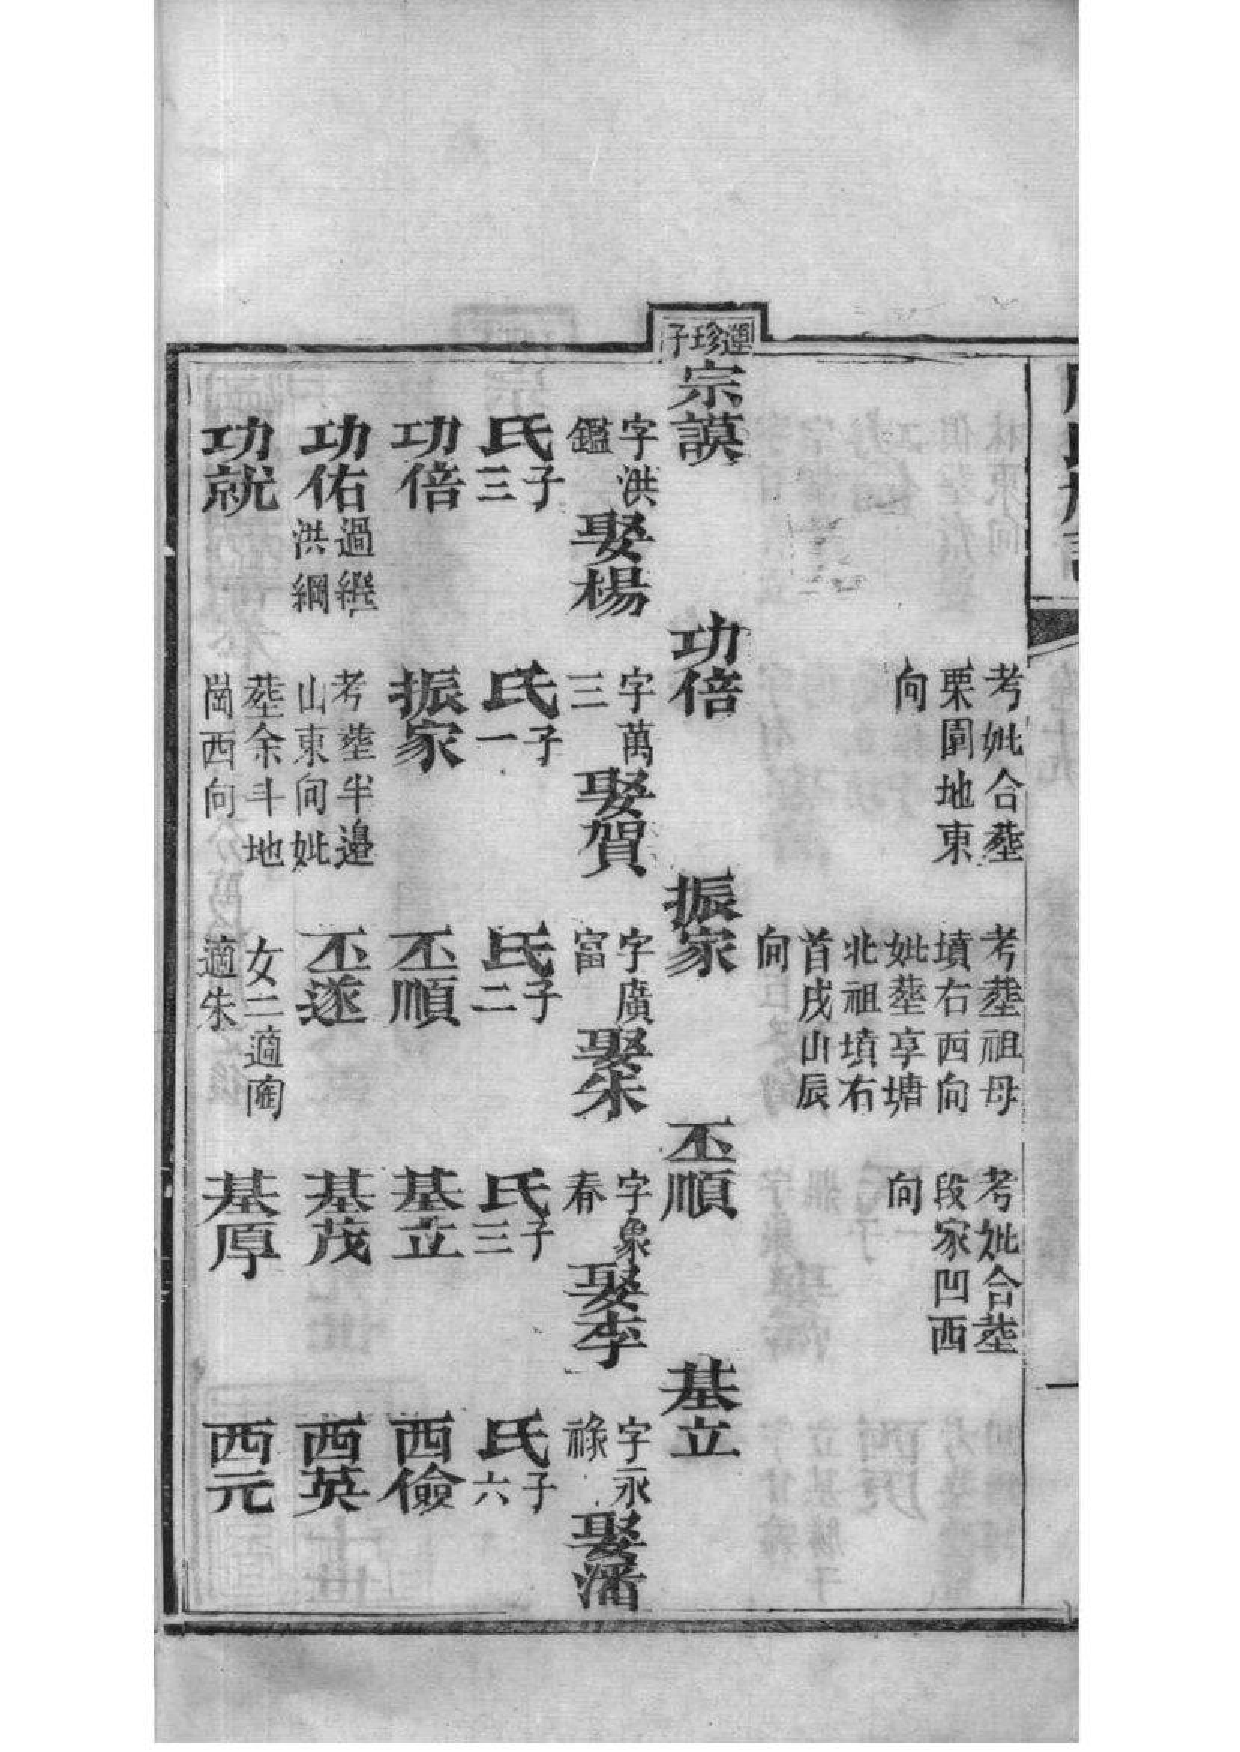 考妣合塟
栗園地東
向
考塟祖母
墳右西向
妣塟享塘
北祖墳右
首戌山辰
向
考妣合塟
段家凹西
向
珍子
宗謨
功倍
振家
丕順
基立
字洪
鑑
娶楊
氏三子
功倍
功佑過繼
洪綱
功就
字萬
三
娶賀
氏一子
振家
考塟半邉
山東向妣
塟余斗地
崗西向
字廣
富
娶朱
氏二子
丕順
丕遂
女二適陶
適朱
字象
春
娶李
氏三子
基立
基茂
基厚
字永
祿
娶潘
氏六子
西儉
西英
西元